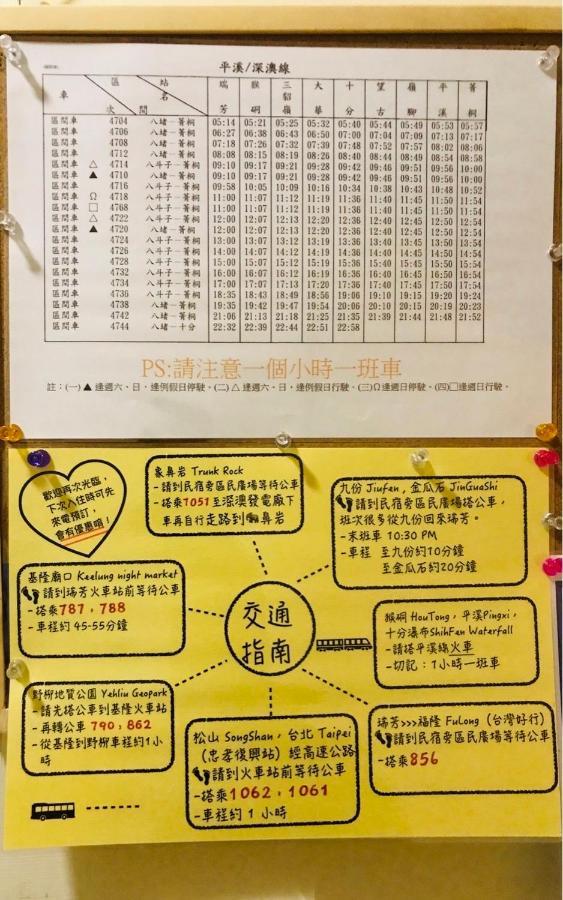 平溪/深澳線
車次 區間 站名 瑞芳 猴硐 三貂嶺 大華 十分 望古 嶺腳 平溪 菁桐
區間車 4704 八堵─菁桐 05:14 05:21 05:25 05:32 05:40 05:44 05:49 05:53 05:57
區間車 4706 八堵─菁桐 06:27 06:38 06:43 06:50 07:00 07:04 07:09 07:13 07:17
區間車 4708 八堵─菁桐 07:18 07:26 07:32 07:39 07:48 07:52 07:57 08:02 08:06
區間車 4712 八堵─菁桐 08:08 08:15 08:19 08:26 08:40 08:44 08:49 08:54 08:58
區間車 △ 4714 八斗子─菁桐 09:10 09:17 09:21 09:28 09:42 09:46 09:51 09:56 10:00
區間車 ▲ 4710 八堵─菁桐 09:10 09:17 09:21 09:28 09:42 09:46 09:51 09:56 10:00
區間車 4716 八斗子─菁桐 09:58 10:05 10:09 10:16 10:34 10:38 10:43 10:48 10:52
區間車 Ω 4718 八斗子─菁桐 11:00 11:07 11:12 11:19 11:36 11:40 11:45 11:50 11:54
區間車 □ 4768 八斗子─菁桐 11:00 11:07 11:12 11:19 11:36 11:40 11:45 11:50 11:54
區間車 △ 4722 八斗子─菁桐 12:00 12:07 12:13 12:20 12:36 12:40 12:45 12:50 12:54
區間車 ▲ 4720 八堵─菁桐 12:00 12:07 12:13 12:20 12:36 12:40 12:45 12:50 12:54
區間車 4724 八斗子─菁桐 13:00 13:07 13:12 13:19 13:36 13:40 13:45 13:50 13:54
區間車 4726 八斗子─菁桐 14:00 14:07 14:12 14:19 14:36 14:40 14:45 14:50 14:54
區間車 4728 八斗子─菁桐 15:00 15:07 15:12 15:19 15:36 15:40 15:45 15:50 15:54
區間車 4732 八斗子─菁桐 16:00 16:07 16:12 16:19 16:36 16:40 16:45 16:50 16:54
區間車 4734 八斗子─菁桐 17:00 17:07 17:13 17:20 17:36 17:40 17:45 17:50 17:54
區間車 4736 八斗子─菁桐 18:35 18:43 18:49 18:56 19:06 19:10 19:15 19:20 19:24
區間車 4738 八堵─菁桐 19:35 19:42 19:47 19:54 20:06 20:10 20:15 20:19 20:23
區間車 4742 八堵─菁桐 21:06 21:13 21:18 21:25 21:35 21:39 21:44 21:48 21:52
區間車 4744 八堵─十分 22:32 22:39 22:44 22:51 22:58
PS:請注意一個小時一班車
註：(一)▲逢週六、日，逢例假日停駛。(二)△逢週六、日，逢例假日行駛。(三)Ω逢週日停駛。(四)□逢週日行駛。
歡迎再次光臨，
下次入住時可先
來電預訂，
會有優惠唷！
象鼻岩 Trunk Rock
-請到民宿旁區民廣場等待公車
-搭乘1051至深澳發電廠下
車再自行走路到象鼻岩
九份 Jiufen，金瓜石 JinGuaShi
請到民宿旁區民廣場搭公車，
班次很多從九份回來瑞芳。
-末班車 10:30 PM
-車程 至九份約10分鐘
至金瓜石約20分鐘
基隆廟口 Keelung night market
請到瑞芳火車站前等待公車
-搭乘787，788
-車程約 45-55分鐘
交通
指南
猴硐 HouTong，平溪Pingxi，
十分瀑布ShihFen Waterfall
-請搭平溪線火車
-切記：1小時一班車
野柳地質公園 Yehliu Geopark
-請先搭公車到基隆火車站
-再轉公車 790，862
-從基隆到野柳車程約1小
時
松山 SongShan，台北 Taipei
（忠孝復興站）經高速公路
請到火車站前等待公車
-搭乘1062，1061
-車程約 1 小時
瑞芳>>>福隆 FuLong（台灣好行）
請到民宿旁區民廣場等待公車
-搭乘856